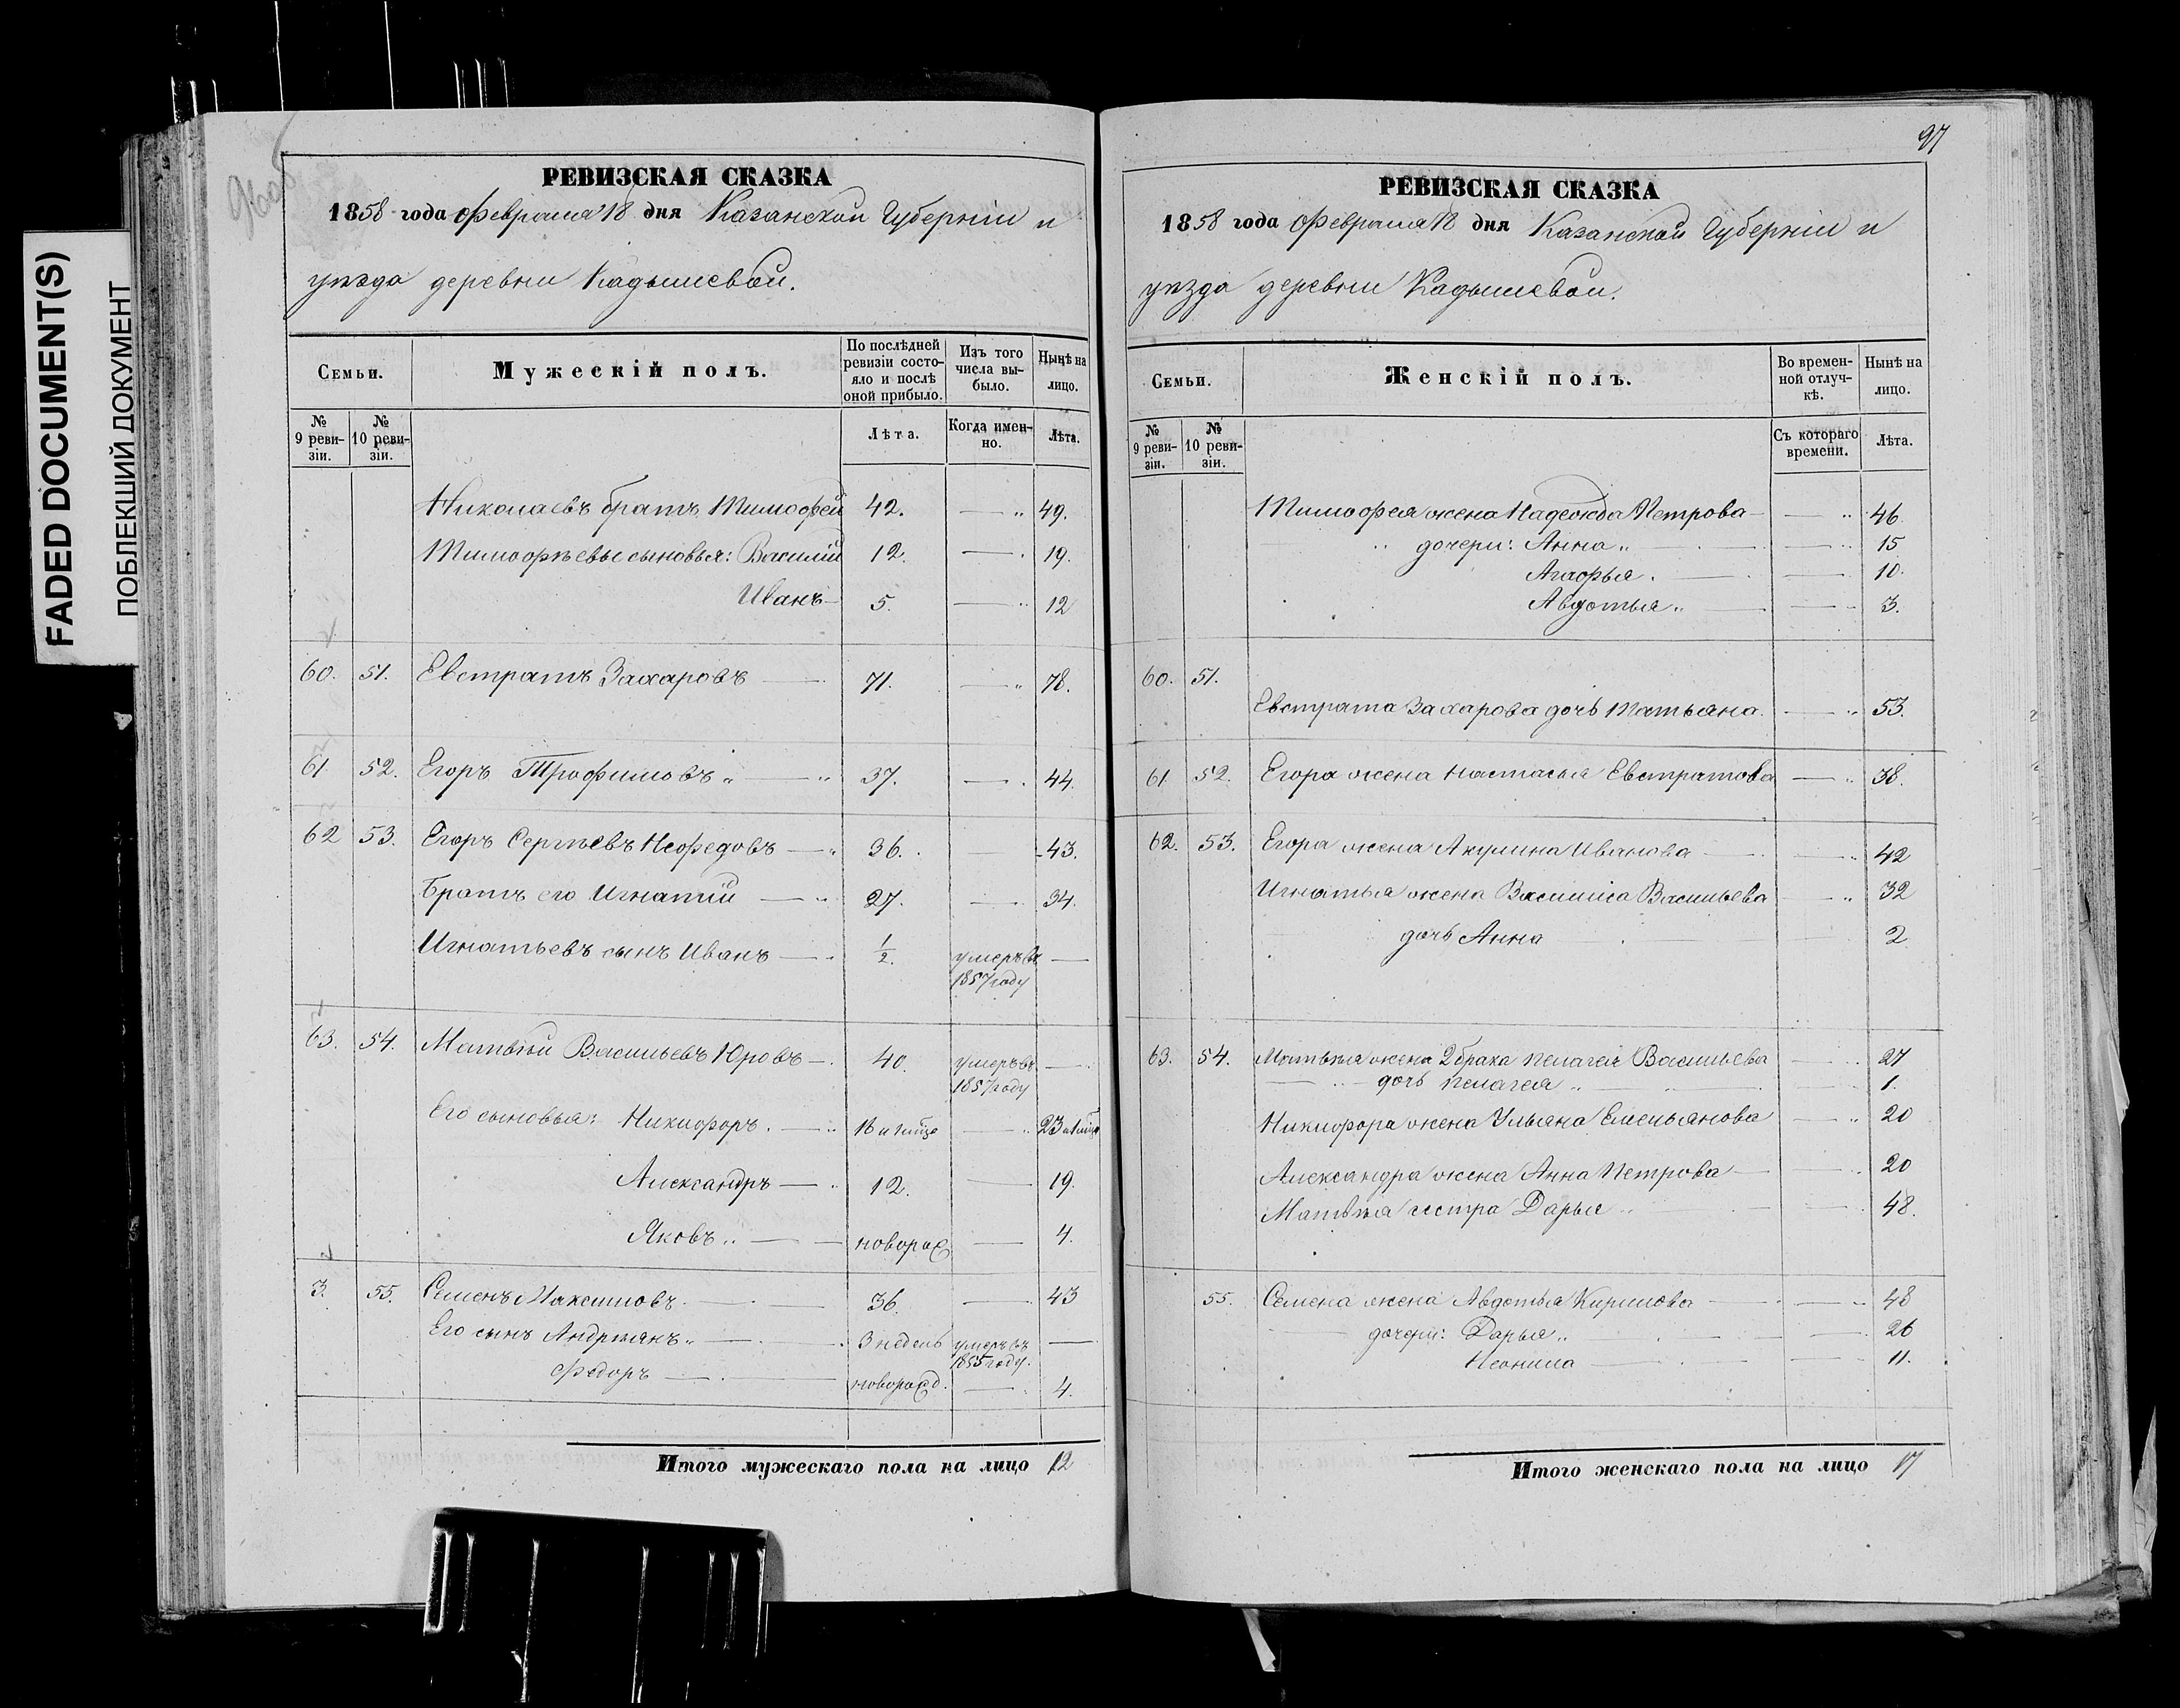 FADED DOCUMENT(S)
ПОБЛЕКШИЙ ДОКУМЕНТ
96об
РЕВИЗСКАЯ СКАЗКА
1858 года Февраля 18 дня Казанской Губерніи и
уѣзда деревни Кадышевой.
Семьи.
Мужескій полъ.
По послѣдней ревизіи состояло и послѣ оной прибыло.
Изъ того числа выбыло.
Нынѣ на лицо.
№ 9 ревизіи.
№ 10 ревизіи.
Лѣта.
Когда именно.
Лѣта.
Николаевъ братъ Тимофей 42. — " 49.
Тимофѣевы сыновья: Василій 12. — . 19.
Иванъ — 5. — " 12
60. 51. Евстратъ Захаровъ — 71. — " 78.
61. 52. Егоръ Трофимовъ " — " 37. — . 44.
62 53. Егоръ Сергѣевъ Нефедовъ — " 36. . — 43.
Братъ его Игнатій — " 27. — 34.
Игнатьевъ сынъ Иванъ — . 1/2. умеръ въ 1857 году —
63. 54. Матвѣй Васильевъ Юровъ — . 40. умеръ въ 1857 году — .
Его сыновья: Никифоръ. — " 16 и 1 мѣс — " 23 и 1 мѣс
Александръ — . 12. — 19.
Яковъ .. — — новорож — 4.
3. 55. Семенъ Максимовъ. — . — 36. — . 43
Его сынъ Андреянъ. " — . — . 3 недель умеръ въ 1855 году. —
Федоръ — . — новорожд. — . 4.
Итого мужескаго пола на лицо 12
97
РЕВИЗСКАЯ СКАЗКА
1858 года Февраля 18 дня Казанской Губерніи и
уѣзда деревни Кадышевой.
Семьи.
Женскій полъ.
Во временной отлучкѣ.
Нынѣ на лицо.
№ 9 ревизіи.
№ 10 ревизіи.
Съ котораго времени.
Лѣта.
Тимофея жена Надежда Петрова — — " 46
" дочери: Анна " — . — — " 15
Агафья. — . — 10.
Авдотья " — — " 3.
60. 51.
Евстрата Захарова дочь Татьяна. — " 53.
61 52. Егора жена Настасья Евстратова — " 38.
62. 53. Егора жена Акулина Иванова — . — " 42
Игнатья жена Василиса Васильева — " 32
дочь Анна . — — 2
63. 54. Матвѣя жена 2 брака Пелагея Васильева — . 27
— " — дочь Пелагея " — — 1.
Никифора жена Ульяна Емельянова — " 20
Александра жена Анна Петрова — — . 20
Матвѣя сестра Дарья " — — . 48.
55. Семена жена Авдотья Кирилова — . — " 48
— дочери: Дарья " — — . 26
Неонила — . — — . 11.
Итого женскаго пола на лицо 17